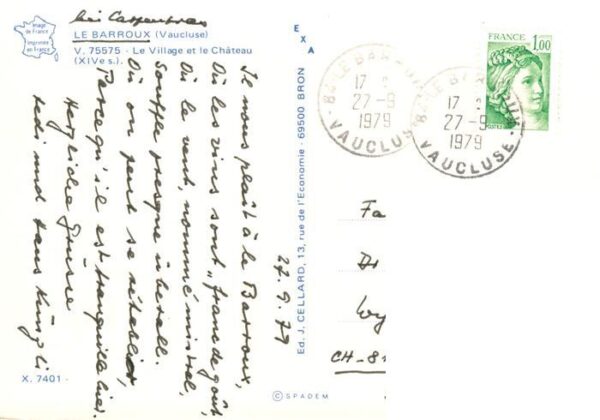 bei Carpentras
Image
de France
Imprimée
en France
LE BARROUX (Vaucluse)
V. 75575 - Le Village et le Château
(XIVe s.).
Il nous plaît à le Barroux,
Où les vins sont „franc de goût“,
Où le vent, nommé mistral,
Souffle presque überall.
Où on peut se rétablir,
Parce qu'il est tranquille hier.
Herzliche Grüsse
Hedi und Hans Küngli
27.9.79
X. 7401 -
EXA
Ed. J. CELLARD, 13, rue de l'Economie - 69500 BRON
© SPADEM
84 LE BARROUX
17
27-9
1979
VAUCLUSE
84 LE BARROUX
17
27-9
1979
VAUCLUSE
FRANCE
1,00
POSTES
Fa
Dr
CH-81